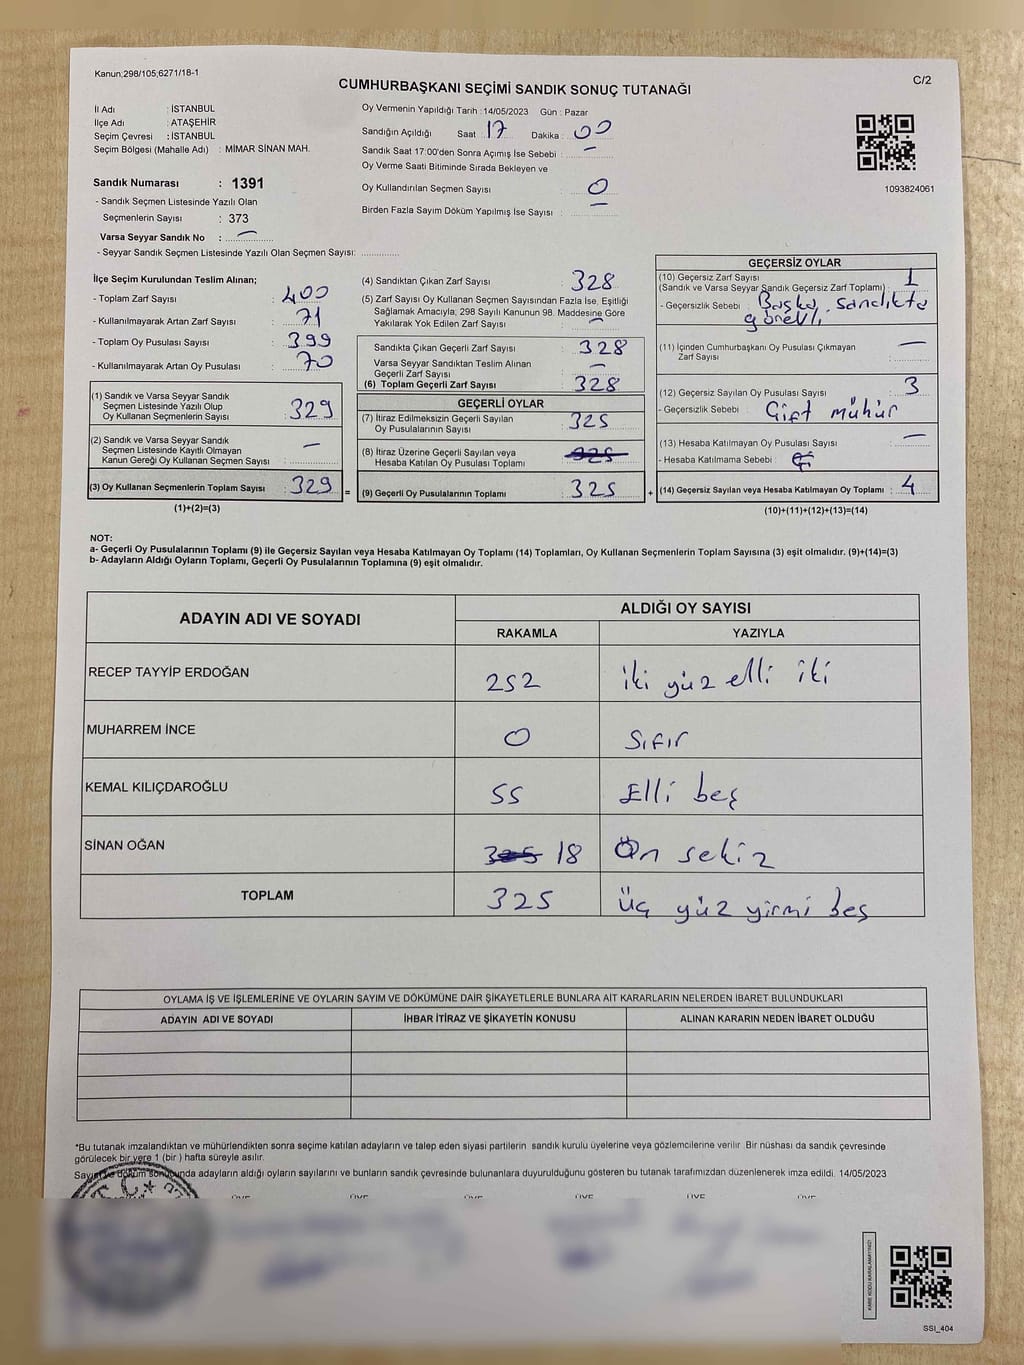 Kanun;298/105;6271/18-1
C/2
CUMHURBAŞKANI SEÇİMİ SANDIK SONUÇ TUTANAĞI
İl Adı : İSTANBUL
İlçe Adı : ATAŞEHİR
Seçim Çevresi : İSTANBUL
Seçim Bölgesi (Mahalle Adı) : MİMAR SİNAN MAH.
Sandık Numarası : 1391
- Sandık Seçmen Listesinde Yazılı Olan
Seçmenlerin Sayısı : 373
Varsa Seyyar Sandık No : —
- Seyyar Sandık Seçmen Listesinde Yazılı Olan Seçmen Sayısı:
Oy Vermenin Yapıldığı Tarih : 14/05/2023 Gün : Pazar
Sandığın Açıldığı Saat 17 Dakika : 00
Sandık Saat 17:00'den Sonra Açımış İse Sebebi : —
Oy Verme Saati Bitiminde Sırada Bekleyen ve
Oy Kullandırılan Seçmen Sayısı : 0
Birden Fazla Sayım Döküm Yapılmış İse Sayısı : —
1093824061
İlçe Seçim Kurulundan Teslim Alınan;
- Toplam Zarf Sayısı : 400
- Kullanılmayarak Artan Zarf Sayısı : 71
- Toplam Oy Pusulası Sayısı : 399
- Kullanılmayarak Artan Oy Pusulası : 70
(1) Sandık ve Varsa Seyyar Sandık
Seçmen Listesinde Yazılı Olup
Oy Kullanan Seçmenlerin Sayısı : 329
(2) Sandık ve Varsa Seyyar Sandık
Seçmen Listesinde Kayıtlı Olmayan
Kanun Gereği Oy Kullanan Seçmen Sayısı : —
(3) Oy Kullanan Seçmenlerin Toplam Sayısı : 329 =
(1)+(2)=(3)
(4) Sandıktan Çıkan Zarf Sayısı : 328
(5) Zarf Sayısı Oy Kullanan Seçmen Sayısından Fazla İse, Eşitliği
Sağlamak Amacıyla; 298 Sayılı Kanunun 98. Maddesine Göre
Yakılarak Yok Edilen Zarf Sayısı : —
Sandıkta Çıkan Geçerli Zarf Sayısı : 328
Varsa Seyyar Sandıktan Teslim Alınan
Geçerli Zarf Sayısı : —
(6) Toplam Geçerli Zarf Sayısı : 328
GEÇERLİ OYLAR
(7) İtiraz Edilmeksizin Geçerli Sayılan
Oy Pusulalarının Sayısı : 325
(8) İtiraz Üzerine Geçerli Sayılan veya
Hesaba Katılan Oy Pusulası Toplamı : 325
(9) Geçerli Oy Pusulalarının Toplamı : 325 +
GEÇERSİZ OYLAR
(10) Geçersiz Zarf Sayısı
(Sandık ve Varsa Seyyar Sandık Geçersiz Zarf Toplamı) : 1
- Geçersizlik Sebebi : Başka sandıkta
görevli.
(11) İçinden Cumhurbaşkanı Oy Pusulası Çıkmayan
Zarf Sayısı : —
(12) Geçersiz Sayılan Oy Pusulası Sayısı : 3
- Geçersizlik Sebebi : Çift mühür
(13) Hesaba Katılmayan Oy Pusulası Sayısı : —
- Hesaba Katılmama Sebebi :
(14) Geçersiz Sayılan veya Hesaba Katılmayan Oy Toplamı : 4
(10)+(11)+(12)+(13)=(14)
NOT:
a- Geçerli Oy Pusulalarının Toplamı (9) ile Geçersiz Sayılan veya Hesaba Katılmayan Oy Toplamı (14) Toplamları, Oy Kullanan Seçmenlerin Toplam Sayısına (3) eşit olmalıdır. (9)+(14)=(3)
b- Adayların Aldığı Oyların Toplamı, Geçerli Oy Pusulalarının Toplamına (9) eşit olmalıdır.
ADAYIN ADI VE SOYADI
ALDIĞI OY SAYISI
RAKAMLA YAZIYLA
RECEP TAYYİP ERDOĞAN 252 iki yüz elli iki
MUHARREM İNCE 0 Sıfır
KEMAL KILIÇDAROĞLU 55 Elli beş
SİNAN OĞAN 325 18 On sekiz
TOPLAM 325 Üç yüz yirmi beş
OYLAMA İŞ VE İŞLEMLERİNE VE OYLARIN SAYIM VE DÖKÜMÜNE DAİR ŞİKAYETLERLE BUNLARA AİT KARARLARIN NELERDEN İBARET BULUNDUKLARI
ADAYIN ADI VE SOYADI İHBAR İTİRAZ VE ŞİKAYETİN KONUSU ALINAN KARARIN NEDEN İBARET OLDUĞU
*Bu tutanak imzalandıktan ve mühürlendikten sonra seçime katılan adayların ve talep eden siyasi partilerin sandık kurulu üyelerine veya gözlemcilerine verilir. Bir nüshası da sandık çevresinde
görülecek bir yere 1 (bir) hafta süreyle asılır.
Sayım ve döküm sonucunda adayların aldığı oyların sayılarını ve bunların sandık çevresinde bulunanlara duyurulduğunu gösteren bu tutanak tarafımızdan düzenlenerek imza edildi. 14/05/2023
T.C.
ÜYE ÜYE ÜYE ÜYE ÜYE ÜYE
SSI_404